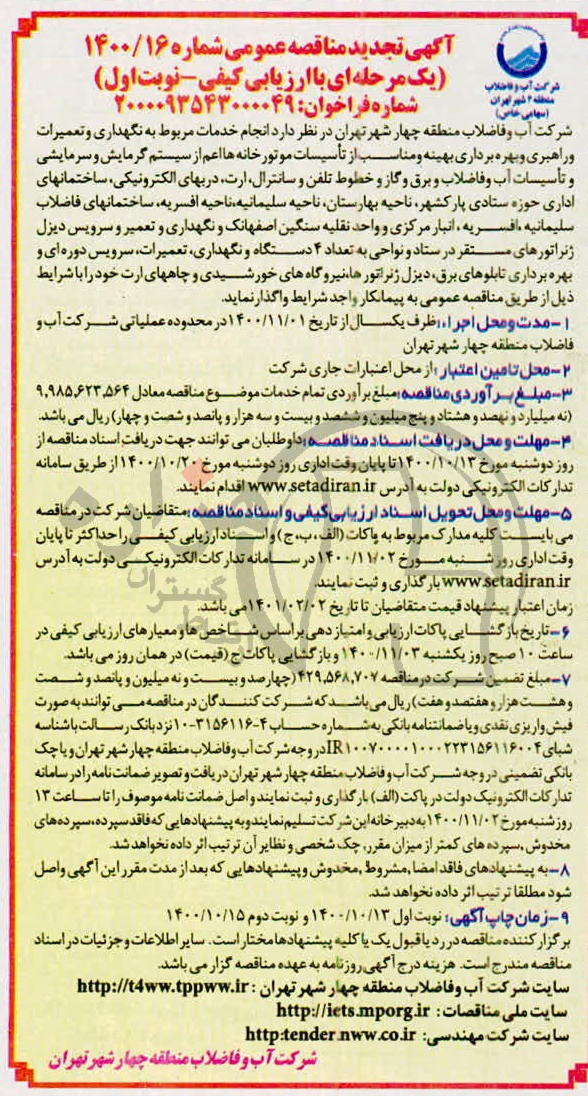 آگهی تجدید مناقصه عمومی شماره ۱۴۰۰/۱۶
(یک مرحله ای با ارزیابی کیفی - نوبت اول)
شماره فراخوان: ۲۰۰۰۰۹۳۵۴۳۰۰۰۰۴۹
شرکت آب و فاضلاب
منطقه ۴ شهر تهران
(سهامی خاص)
شرکت آب و فاضلاب منطقه چهار شهر تهران در نظر دارد انجام خدمات مربوط به نگهداری و تعمیرات
و راهبری و بهره برداری بهینه و مناسب از تأسیسات موتورخانه ها اعم از سیستم گرمایش و سرمایشی
و تأسیسات آب و فاضلاب و برق و گاز و خطوط تلفن و سانترال، ارت، دربهای الکترونیکی، ساختمانهای
اداری حوزه ستادی پارکشهر، ناحیه بهارستان، ناحیه سلیمانیه، ناحیه افسریه، ساختمانهای فاضلاب
سلیمانیه، افسریه، انبار مرکزی و واحد نقلیه سنگین اصفهانک و نگهداری و تعمیر و سرویس دیزل
ژنراتورهای مستقر در ستاد و نواحی به تعداد ۴ دستگاه و نگهداری، تعمیرات، سرویس دوره ای و
بهره برداری تابلوهای برق، دیزل ژنراتور ها، نیروگاه های خورشیدی و چاههای ارت خود را با شرایط
ذیل از طریق مناقصه عمومی به پیمانکار واجد شرایط واگذار نماید.
۱- مدت و محل اجرا: ظرف یکسال از تاریخ ۱۴۰۰/۱۱/۰۱ در محدوده عملیاتی شرکت آب و
فاضلاب منطقه چهار شهر تهران
۲- محل تامین اعتبار: از محل اعتبارات جاری شرکت
۳- مبلغ برآوردی مناقصه: مبلغ برآوردی تمام خدمات موضوع مناقصه معادل ۹,۹۸۵,۶۲۳,۵۶۴
(نه میلیارد و نهصد و هشتاد و پنج میلیون و ششصد و بیست و سه هزار و پانصد و شصت و چهار) ریال می باشد.
۴- مهلت و محل دریافت اسناد مناقصه: داوطلبان می توانند جهت دریافت اسناد مناقصه از
روز دوشنبه مورخ ۱۴۰۰/۱۰/۱۳ تا پایان وقت اداری روز دوشنبه مورخ ۱۴۰۰/۱۰/۲۰ از طریق سامانه
تدارکات الکترونیکی دولت به آدرس www.setadiran.ir اقدام نمایند.
۵- مهلت و محل تحویل اسناد ارزیابی کیفی و اسناد مناقصه: متقاضیان شرکت در مناقصه
می بایست کلیه مدارک مربوط به پاکات (الف، ب، ج) و اسناد ارزیابی کیفی را حداکثر تا پایان
وقت اداری روز شنبه مورخ ۱۴۰۰/۱۱/۰۲ در سامانه تدارکات الکترونیکی دولت به آدرس
www.setadiran.ir بارگذاری و ثبت نمایند.
زمان اعتبار پیشنهاد قیمت متقاضیان تا تاریخ ۱۴۰۱/۰۲/۰۲ می باشد.
۶- تاریخ بازگشایی پاکات ارزیابی و امتیازدهی براساس شاخص ها و معیارهای ارزیابی کیفی در
ساعت ۱۰ صبح روز یکشنبه ۱۴۰۰/۱۱/۰۳ و بازگشایی پاکات ج (قیمت) در همان روز می باشد.
۷- مبلغ تضمین شرکت در مناقصه ۴۲۹,۵۶۸,۷۰۷ (چهارصد و بیست و نه میلیون و پانصد و شصت
و هشت هزار و هفتصد و هفت) ریال می باشد که شرکت کنندگان در مناقصه می توانند به صورت
فیش واریزی نقدی و یا ضمانتنامه بانکی به شماره حساب ۴-۳۱۵۶۱۱۶-۱۰ نزد بانک رسالت با شناسه
شبای IR۱۰۰۷۰۰۰۰۱۰۰۰۲۲۳۱۵۶۱۱۶۰۰۴ در وجه شرکت آب و فاضلاب منطقه چهار شهر تهران و یا چک
بانکی تضمینی در وجه شرکت آب و فاضلاب منطقه چهار شهر تهران دریافت و تصویر ضمانت نامه را در سامانه
تدارکات الکترونیک دولت در پاکت (الف) بارگذاری و ثبت نمایند و اصل ضمانت نامه موصوف را تا ساعت ۱۳
روز شنبه مورخ ۱۴۰۰/۱۱/۰۲ به دبیرخانه این شرکت تسلیم نمایند و به پیشنهادهایی که فاقد سپرده، سپرده های
مخدوش، سپرده های کمتر از میزان مقرر، چک شخصی و نظایر آن ترتیب اثر داده نخواهد شد.
۸- به پیشنهادهای فاقد امضا, مشروط, مخدوش و پیشنهادهایی که بعد از مدت مقرر این آگهی واصل
شود مطلقا ترتیب اثر داده نخواهد شد.
۹- زمان چاپ آگهی: نوبت اول ۱۴۰۰/۱۰/۱۳ و نوبت دوم ۱۴۰۰/۱۰/۱۵
برگزارکننده مناقصه در رد یا قبول یک یا کلیه پیشنهادها مختار است. سایر اطلاعات و جزئیات در اسناد
مناقصه مندرج است. هزینه درج آگهی روزنامه به عهده مناقصه گزار می باشد.
سایت شرکت آب و فاضلاب منطقه چهار شهر تهران: http://t4ww.tppww.ir
سایت ملی مناقصات: http://iets.mporg.ir
سایت شرکت مهندسی: http:tender.nww.co.ir
شرکت آب و فاضلاب منطقه چهار شهر تهران